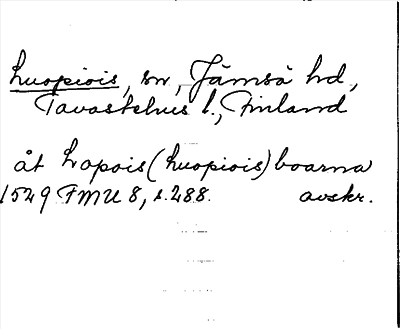 Luopiois, sn, Jämsä hd,
Tavastehus l., Finland
åt Lopois (Luopiois) boarna
1549 FMU 8, s. 288. avskr.